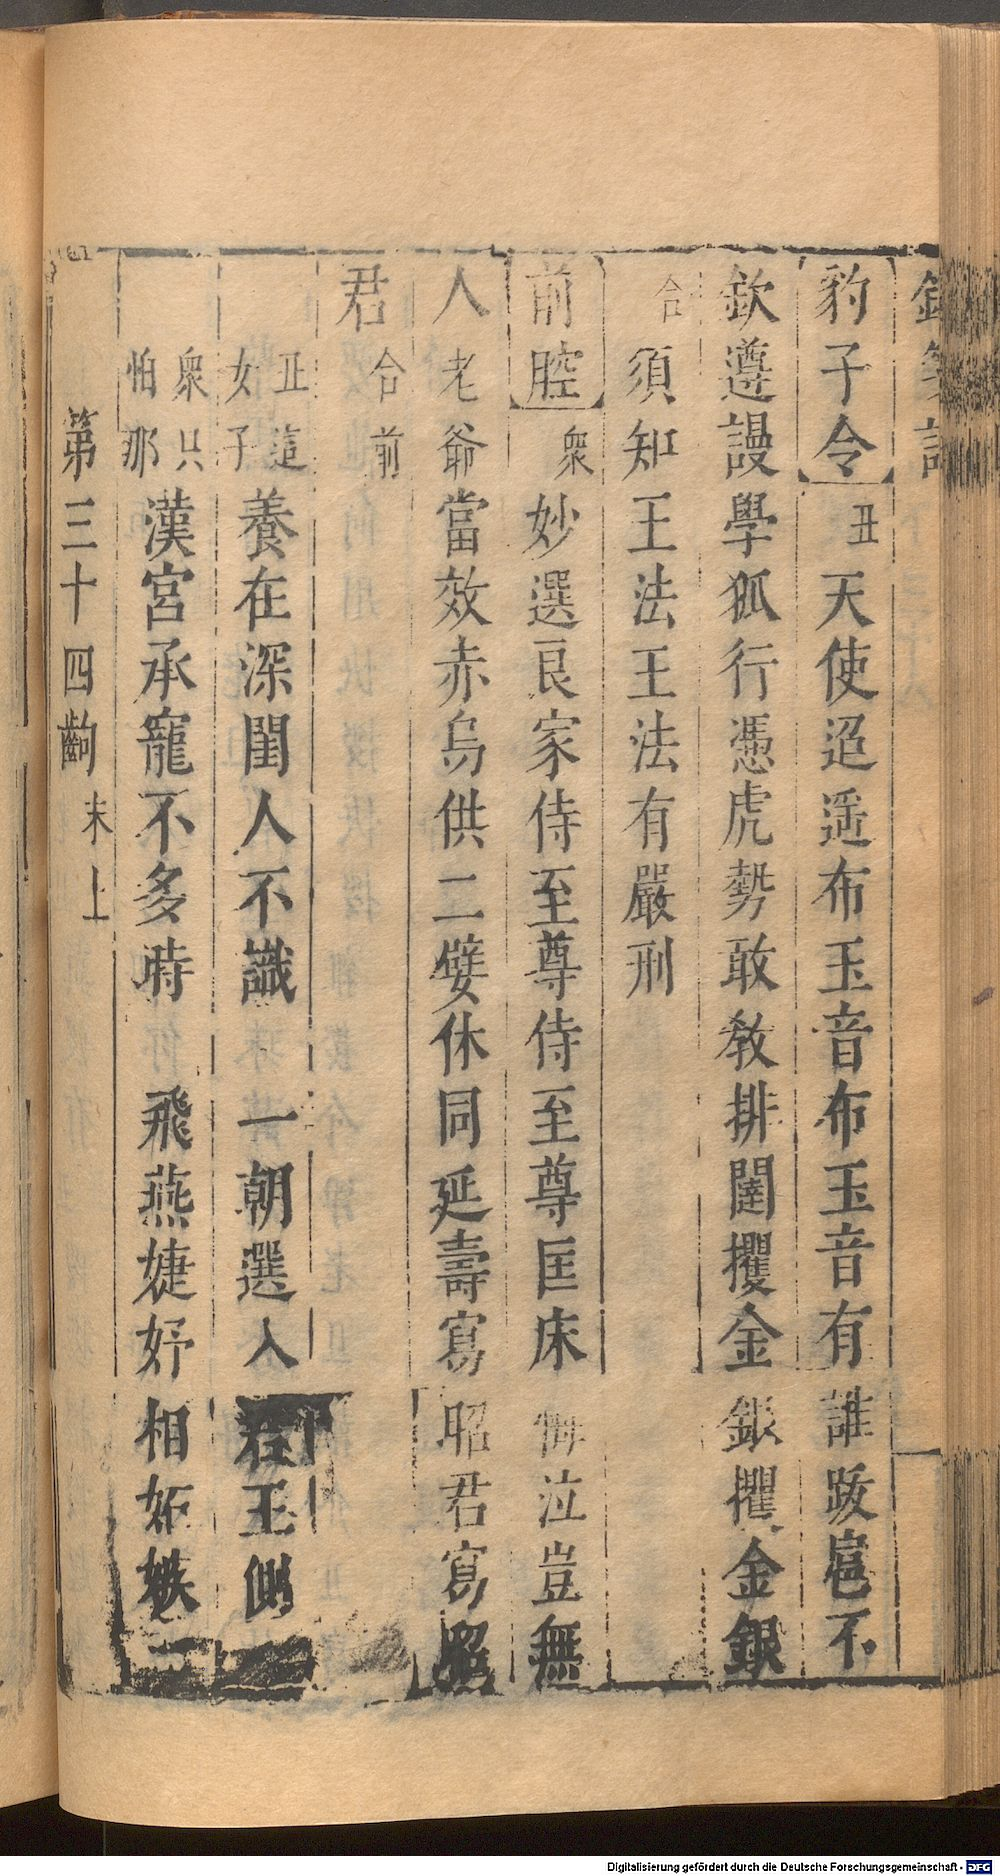 豹子令 丑 天使迢遥布玉音布玉音有誰跋扈不
欽遵謾學狐行憑虎勢敢教排闥攫金銀攫金銀
合 須知王法王法有嚴刑
前腔 衆 妙選良家侍至尊侍至尊匡床 泣豈無
人老爺當效赤烏供二嬖休同延壽寫昭君寫昭
君 合前
丑這女子 養在深閨人不識 一朝選入在王側
衆只怕那 漢宮承寵不多時 飛燕婕妤相妬嫉
第三十四齣 末上
Digitalisierung gefördert durch die Deutsche Forschungsgemeinschaft - DFG